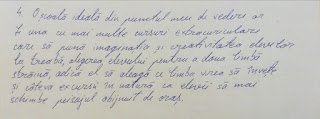 4. O școală ideală din punctul meu de vedere ar
fi una cu mai multe cursuri extracurriculare
care să pună imaginația și creativitatea elevilor
la treabă, alegerea elevului pentru a doua limbă
străină, adică el să aleagă ce limbă vrea să învețe
și câteva excursii în natură ca elevii să mai
schimbe peisajul obișnuit de oraș.